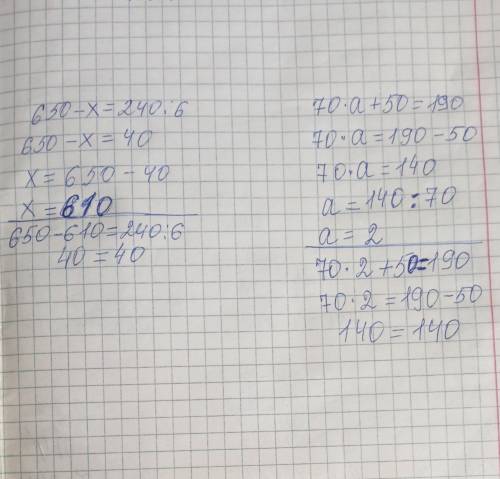 650-x=240:6
650-x=40
x=650-40
x=610
650-610=240:6
40=40
70·a+50=190
70·a=190-50
70·a=140
a=140:70
a=2
70·2+50=190
70·2=190-50
140=140